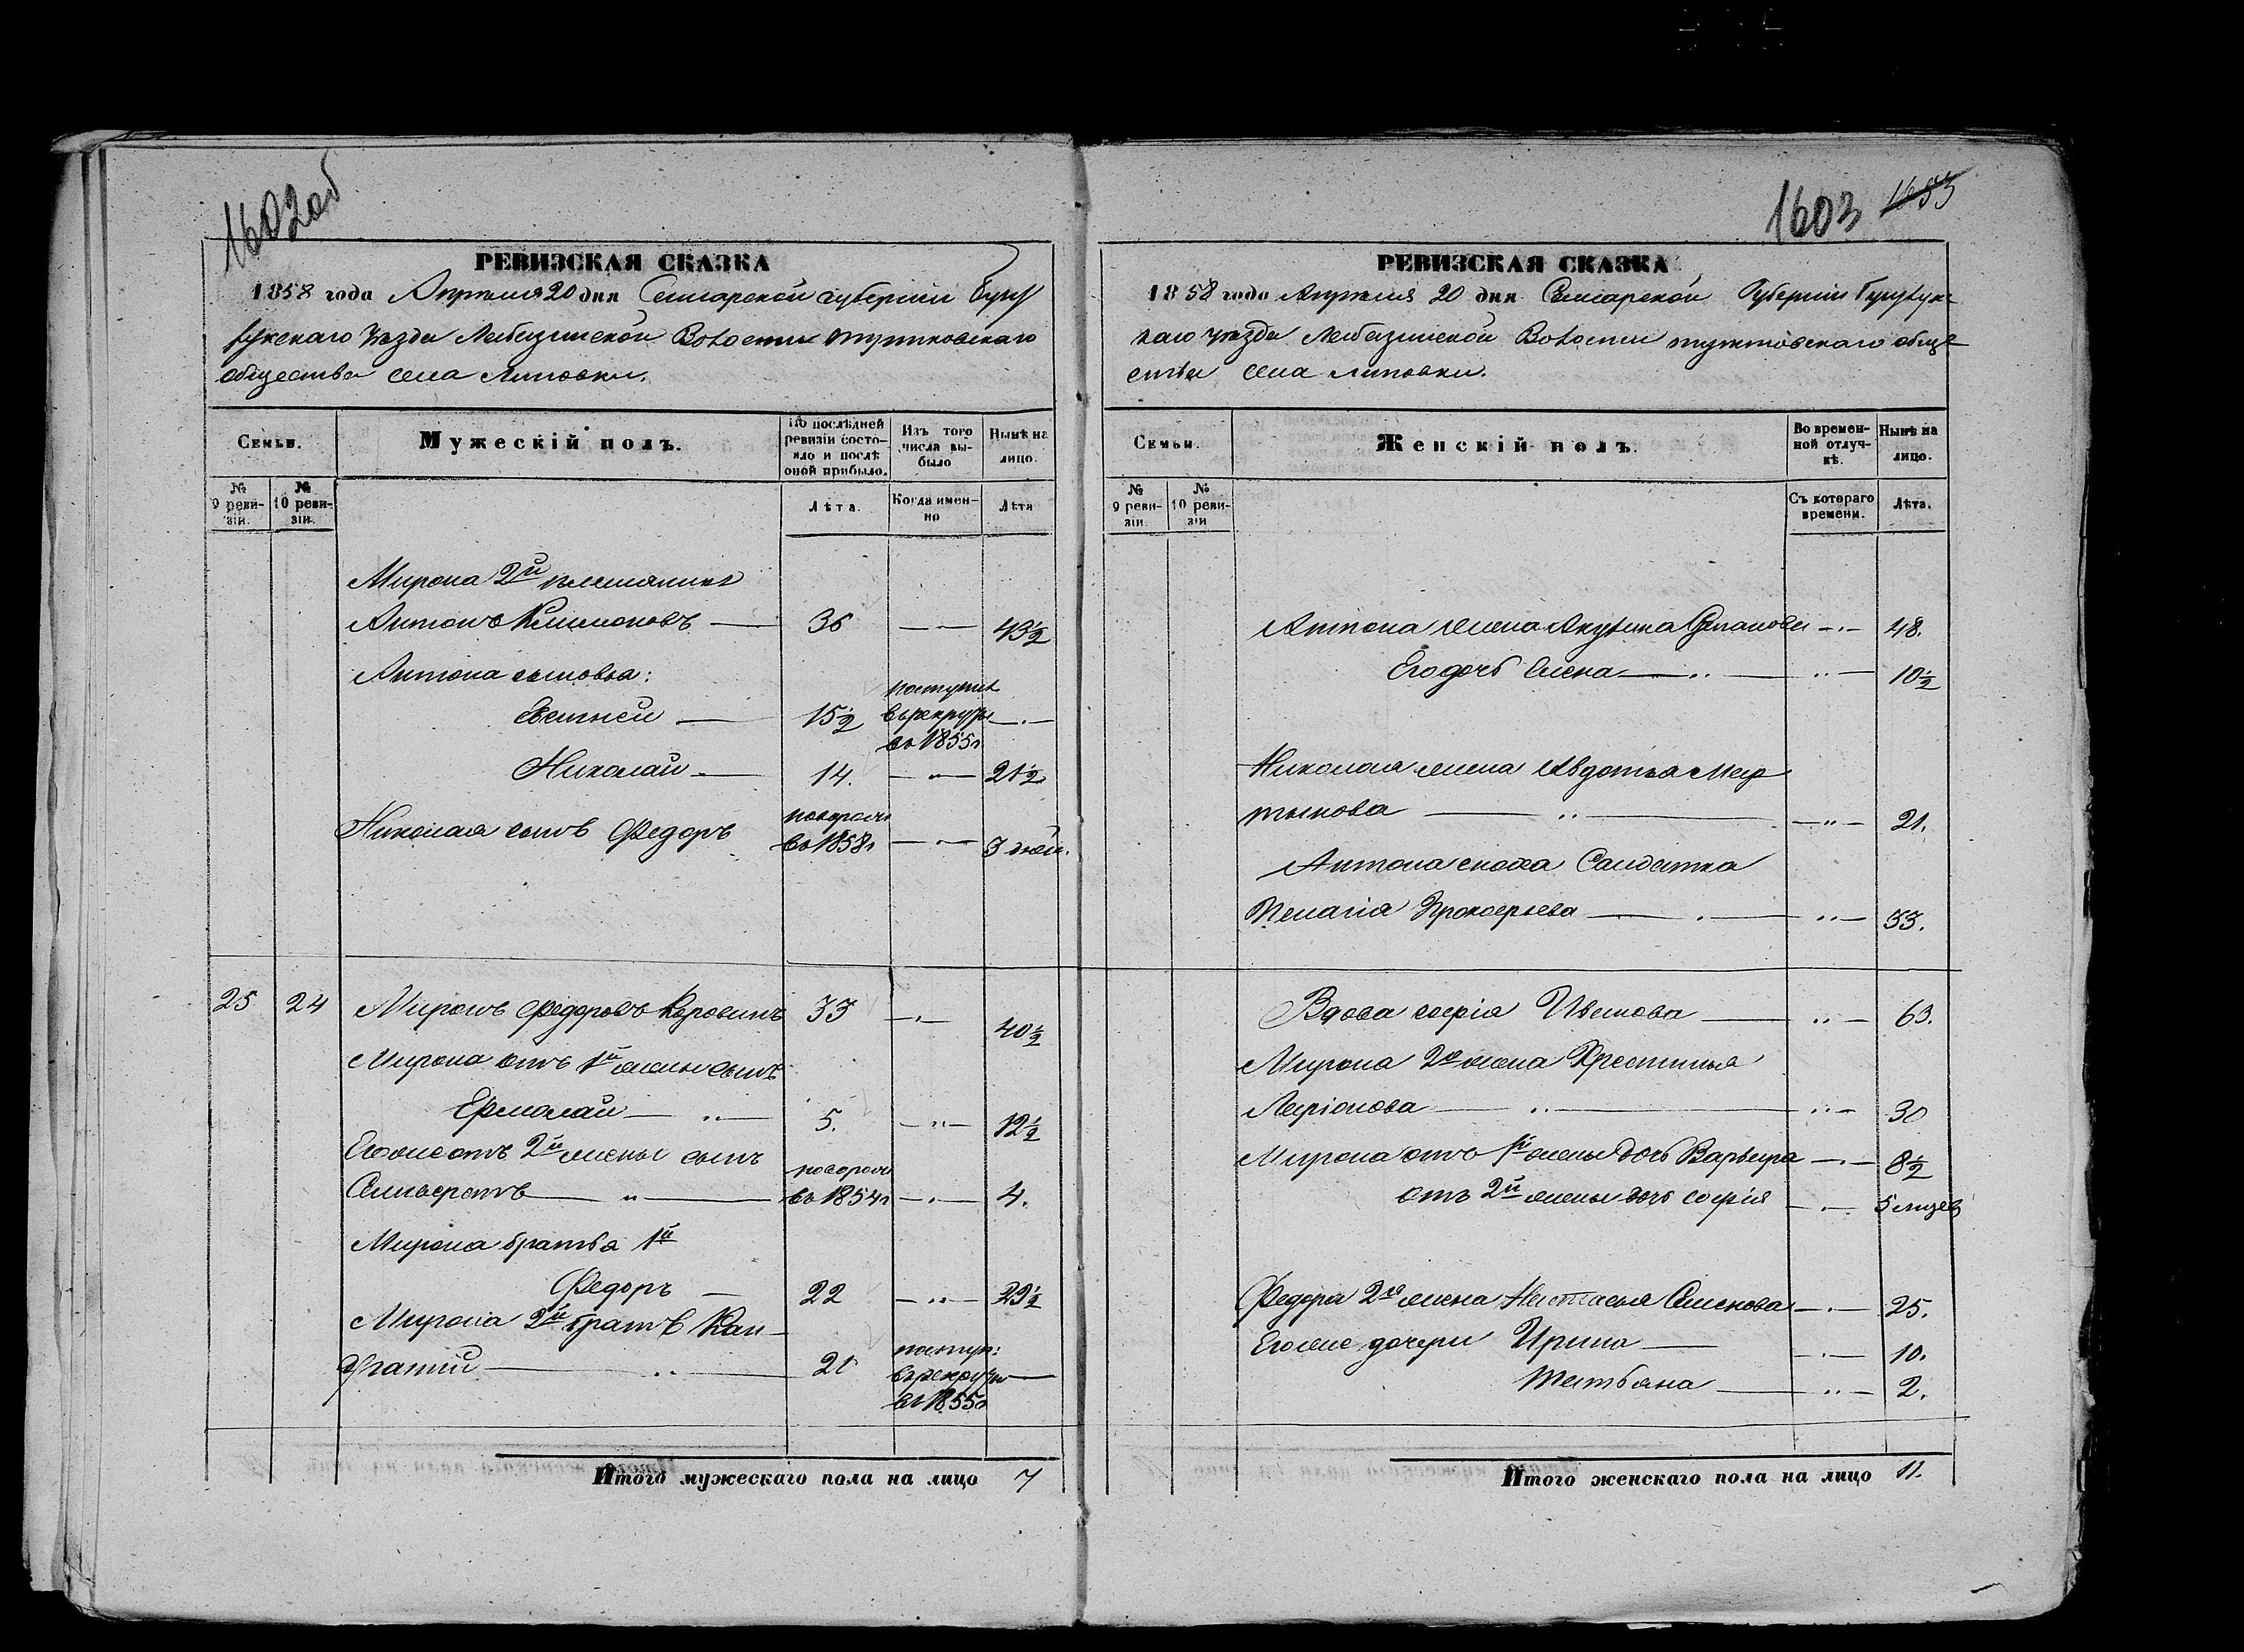 1602об
РЕВИЗСКАЯ СКАЗКА
1858 года Апреля 20 дня Самарской губернии Бугу
рускаго Уезда Волости
общества села Липовки.
Семьи.
Мужескій полъ.
По послѣдней ревизіи состояло и послѣ оной прибыло.
Изъ того числа выбыло
Нынѣ на лицо.
№ 9 ревизіи.
№ 10 ревизіи.
Лѣта.
Когда именно
Лѣта
Мирона 2й племянникъ
Антонъ 36 — „ — 43½
Антона сыновья:
Евгней — 15½ поступил в рекруты въ 1855г — „ —
Николай — 14. — „ — 21½
Николая сынъ Федоръ новорож въ 1858г — „ — 3 дней.
25 24 Миронъ Федоровъ 33 — „ — 40½
Мирона отъ 1й жены сынъ
Ермолай — „ — 5. — „ — 12½
Его же отъ 2й жены сынъ
Селиверстъ — „ — новорож въ 1854г — „ — 4.
Мирона братья 1й
Федоръ — 22 — „ — 29½
Мирона 2й братъ Кан-
дратий — „ — 21 поступ: в рекруты въ 1855г —
Итого мужескаго пола на лицо 7
1603 1653
РЕВИЗСКАЯ СКАЗКА
1858 года Апреля 20 дня Самарской Губернии Бугурус
каго уезда Волости обще
ства села Липовки.
Семьи.
Женскій полъ.
Во временной отлучкѣ.
Нынѣ на лицо.
№ 9 ревизіи.
№ 10 ревизіи
Съ котораго времени.
Лѣта.
Антона жена Акулина Степанова — „ — 48.
Его дочь Елена — „ — „ — 10½
Николая жена Авдотья Мар
тынова — „ — — „ — 21.
Антона сноха Салдатка
Пелагія Прокофьева — „ — „ — 33.
Вдова софія Иванова — „ — 63.
Мирона 2я жена Хрестинья
Ларіонова — „ — „ — 30
Мирона отъ 1й жены дочь Варвара — „ — 8½
отъ 2й жены дочь софія — „ — 5 месяц
Федора 2я жена Настасья Семенова — „ — 25.
Его же дочери Ирина — — „ — 10.
Татьяна — „ — 2.
Итого женскаго пола на лицо 11.